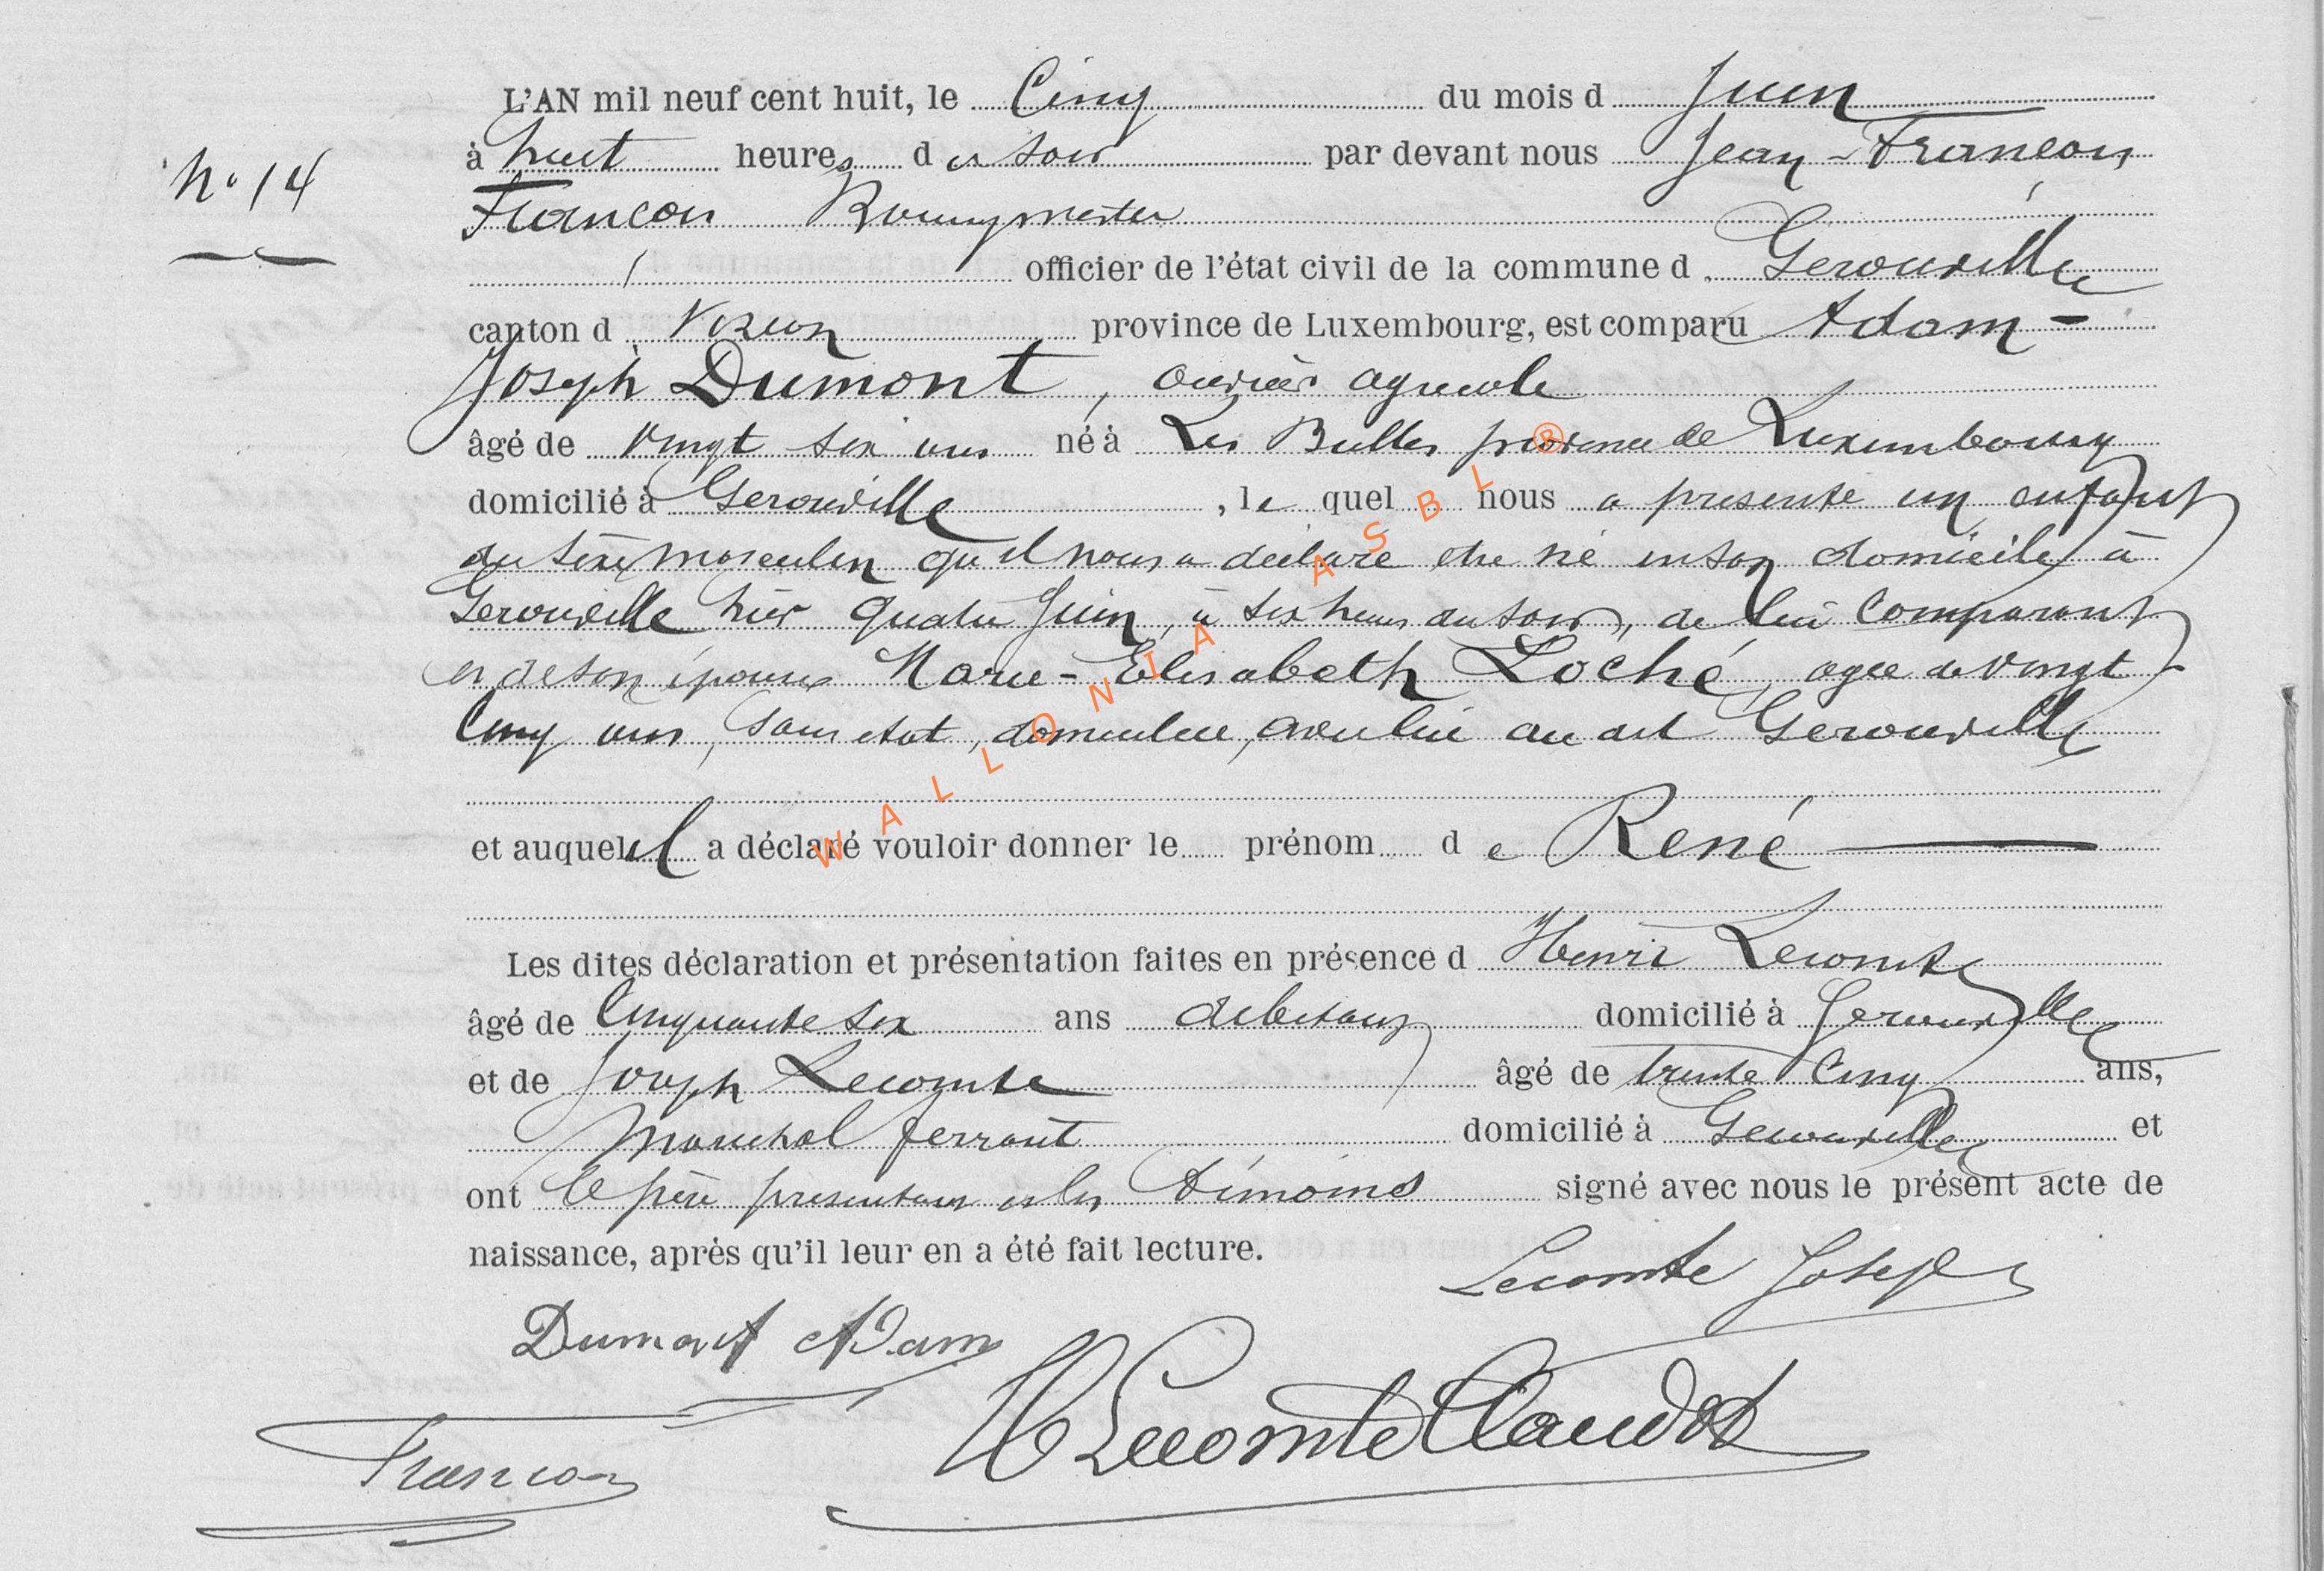 L'AN mil neuf cent huit, le Cinq du mois d Juin
à huit heures du soir par devant nous Jean-François
N° 14
François Bourgmestre
officier de l'état civil de la commune d Gerouville
canton d Virton province de Luxembourg, est comparu Adam-
Joseph Dumont, ouvrier agricole
âgé de vingt six ans né à Les Bulles province de Luxembourg
domicilié à Gerouville, le quel nous a présenté un enfant
du sexe masculin qu'il nous a déclaré etre né en son domicile à
Gerouville hier quatre Juin, à six heures du soir, de lui Comparant
et de son épouse Marie-Elisabeth Loché, agée de vingt
Cinq ans, sans etat, domiciliée, avec lui au dit Gerouville
et auquel il a déclaré vouloir donner le prénom de René
Les dites déclaration et présentation faites en présence d Henri Lecomte
âgé de Cinquante six ans debitant domicilié à Gerouville
et de Joseph Lecomte âgé de trente Cinq ans,
Marechal ferrant domicilié à Gerouville et
ont le père présentant et les témoins signé avec nous le présent acte de
naissance, après qu'il leur en a été fait lecture.
Lecomte Joseph
Dumont Adam
H Lecomte Claudot
François
WALLONIA ASBL ®